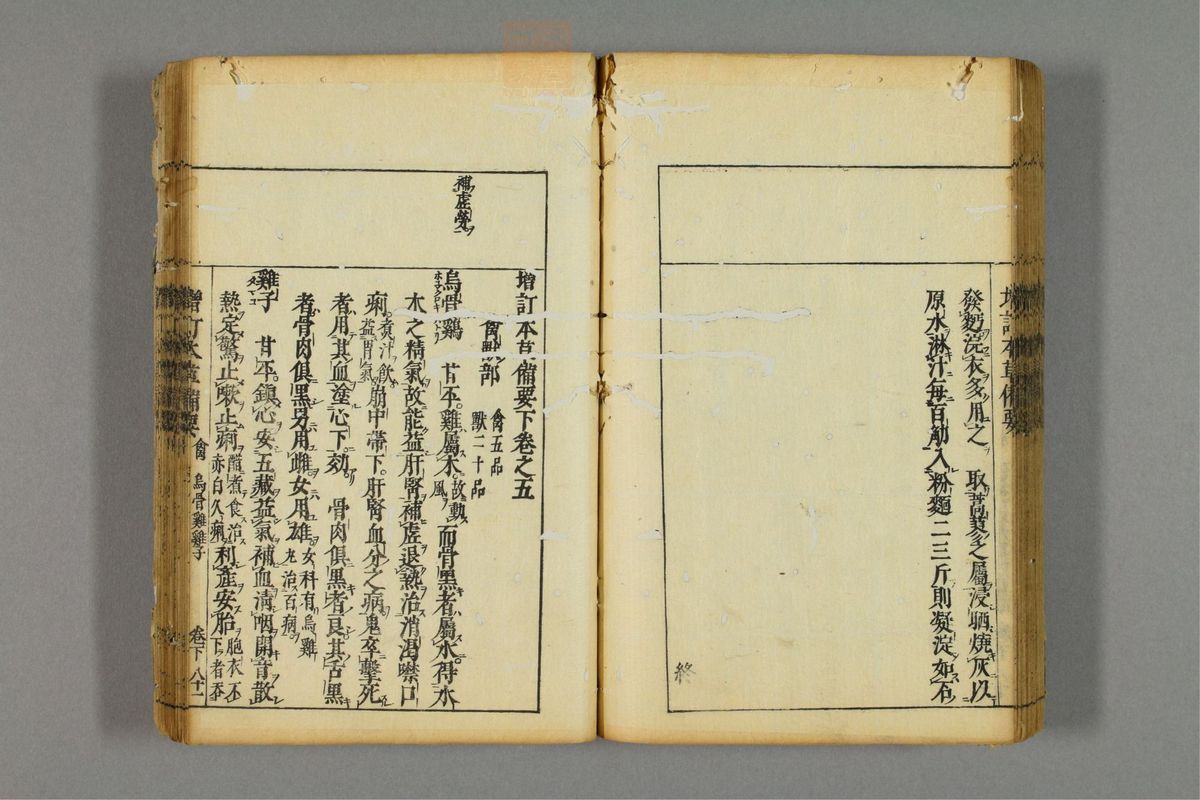 增訂本草備要
發麪浣衣多用之 取蒿蓼之屬浸晒燒灰以
原水淋汁每百觔入粉麵二三斤則凝淀如石
終
增訂本草備要下卷之五
禽獸部 禽五品 獸二十品
補虛勞
烏骨鷄 甘平雞屬木故動風而骨黑者屬水得水
木之精氣故能益肝腎補虛退熱治消渴噤口
痢煮汁飲益胃氣崩中帶下肝腎血分之病鬼卒擊死
者用其血塗心下効 骨肉俱黑者良其舌黑
者骨肉俱黑男用雌女用雄女科有烏雞丸治百病
雞子 甘平鎮心安五藏益氣補血淸咽開音散
熱定驚止嗽止痢醋煮食治赤白久痢利產安胎胞衣不下者吞
增訂本草備要 禽 烏骨雞雞子 卷下 八十一